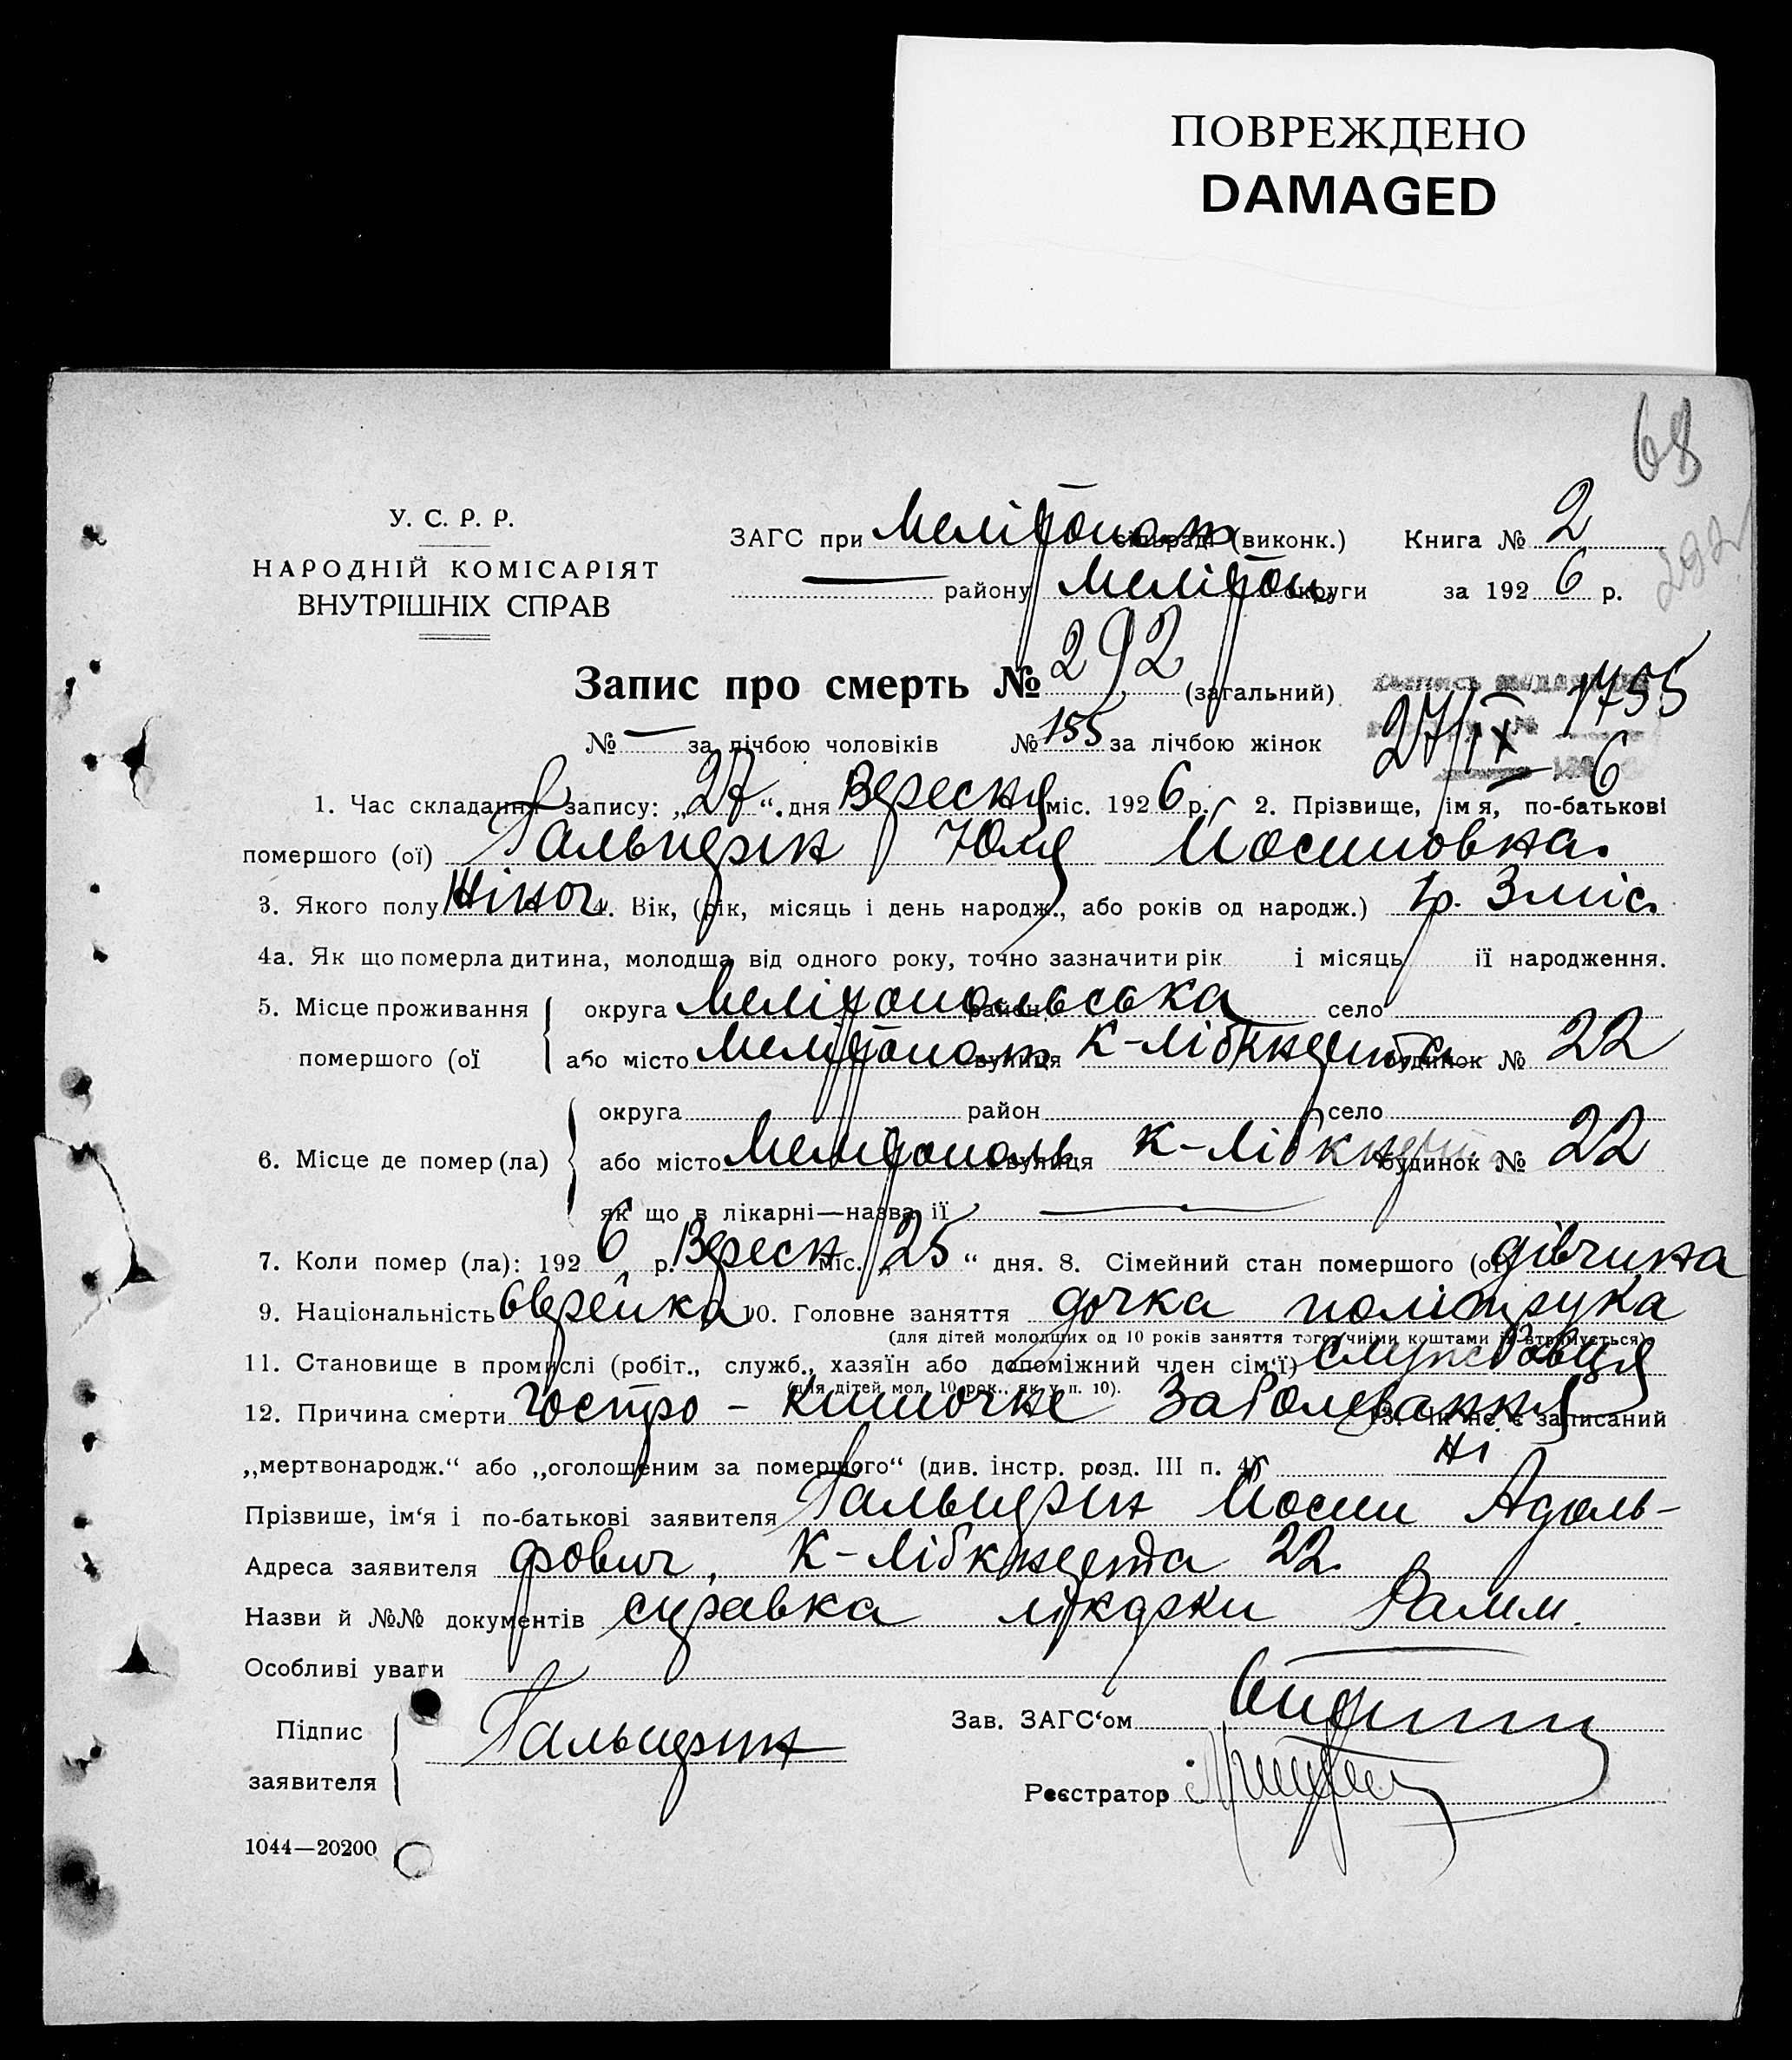 ПОВРЕЖДЕНО
DAMAGED
68
292
У. С. Р. Р.
НАРОДНІЙ КОМІСАРІЯТ
ВНУТРІШНІХ СПРАВ
ЗАГС при Мелітопол сільраді (виконк.) Книга № 2
— району Мелітоп. округи за 1926 р.
Запис про смерть № 292 (загальний)
1755
№ — за лічбою чоловіків № 155 за лічбою жінок
27/IX 6
1. Час складання запису: „27“ дня Вересня міс. 1926 р. 2. Прізвище, ім я, по-батькові
помершого (ої) Гальперін Юля Йосиповна.
3. Якого полу жіноч 4. Вік, (рік, місяць і день народж., або років од народж.) 1р. 3 міс.
4а. Як що померла дитина, молодша від одного року, точно зазначити рік і місяць її народження.
5. Місце проживання округа Мелітопольська район село
помершого (ої або місто Мелітопол вулиця К-Лібкнехта будинок № 22
округа район село
6. Місце де помер (ла) або місто Мелітополь вулиця К-Лібкнехта будинок № 22
як що в лікарні—назва її —
7. Коли помер (ла): 1926 р. Вересн міс. „25“ дня. 8. Сімейний стан помершого (ої) дівчина
9. Національність еврейка 10. Головне заняття дочка політрука
(для дітей молодших од 10 років заняття того, чиїми коштами їх втримується)
11. Становище в промислі (робіт., служб., хазяїн або допоміжний член сім'ї) службовця
(для дітей мол. 10 рок., як у п. 10).
12. Причина смерти гостро - кишочне заболевання 13. Чи не є записаний
„мертвонародж.“ або „оголошеним за помершого“ (див. інстр. розд. III п. 4) ні
Прізвише, ім'я і по-батькові заявителя Гальперін Йосип Адоль-
Адреса заявителя фович, К-Лібкнехта 22.
Назви й №№ документів справка лікарки Рамм.
Особливі уваги
Підпис
заявителя
Гальперин
Зав. ЗАГС'ом
Реєстратор
1044—20200